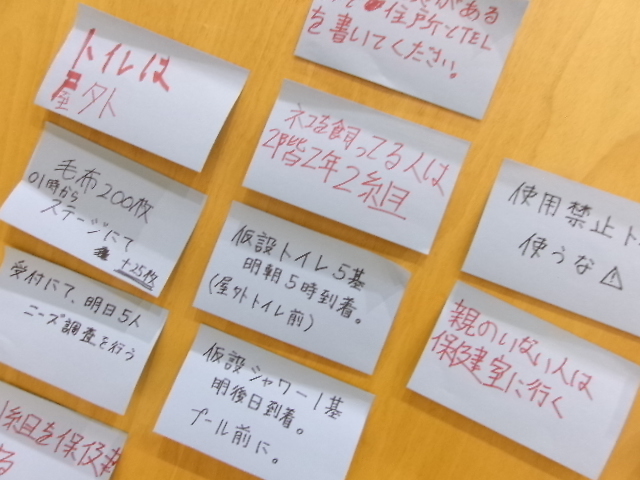 がある
住所とTEL
を書いてください。
トイレは
屋外
ネコを飼ってる人は
2階2年2組
毛布200枚
01時から
ステージにて
+25枚
使用禁止ト
使うな⚠
仮設トイレ5基
明朝5時到着。
(屋外トイレ前)
受付にて、明日5人
ニーズ調査を行う
親のいない人は
保健室に行く
仮設シャワー1基
明後日到着。
プール前に。
組を保
る